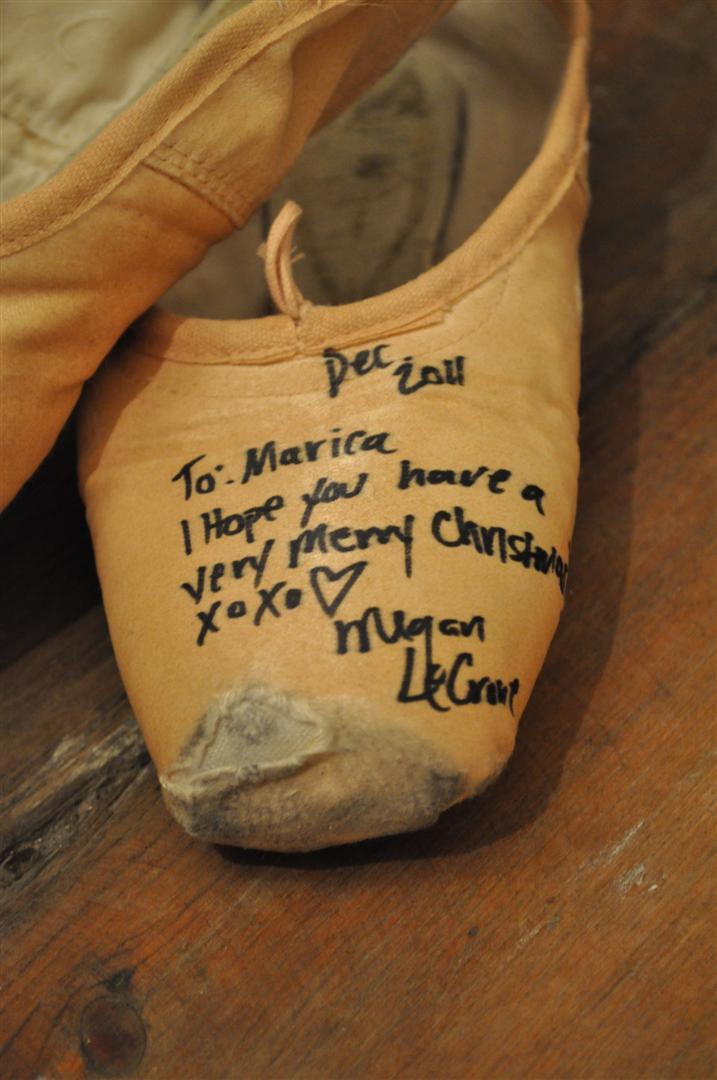 Dec 2011
To: Marica
I Hope you have a
very merry Christmas
xoxo♡
Megan
LeCrone